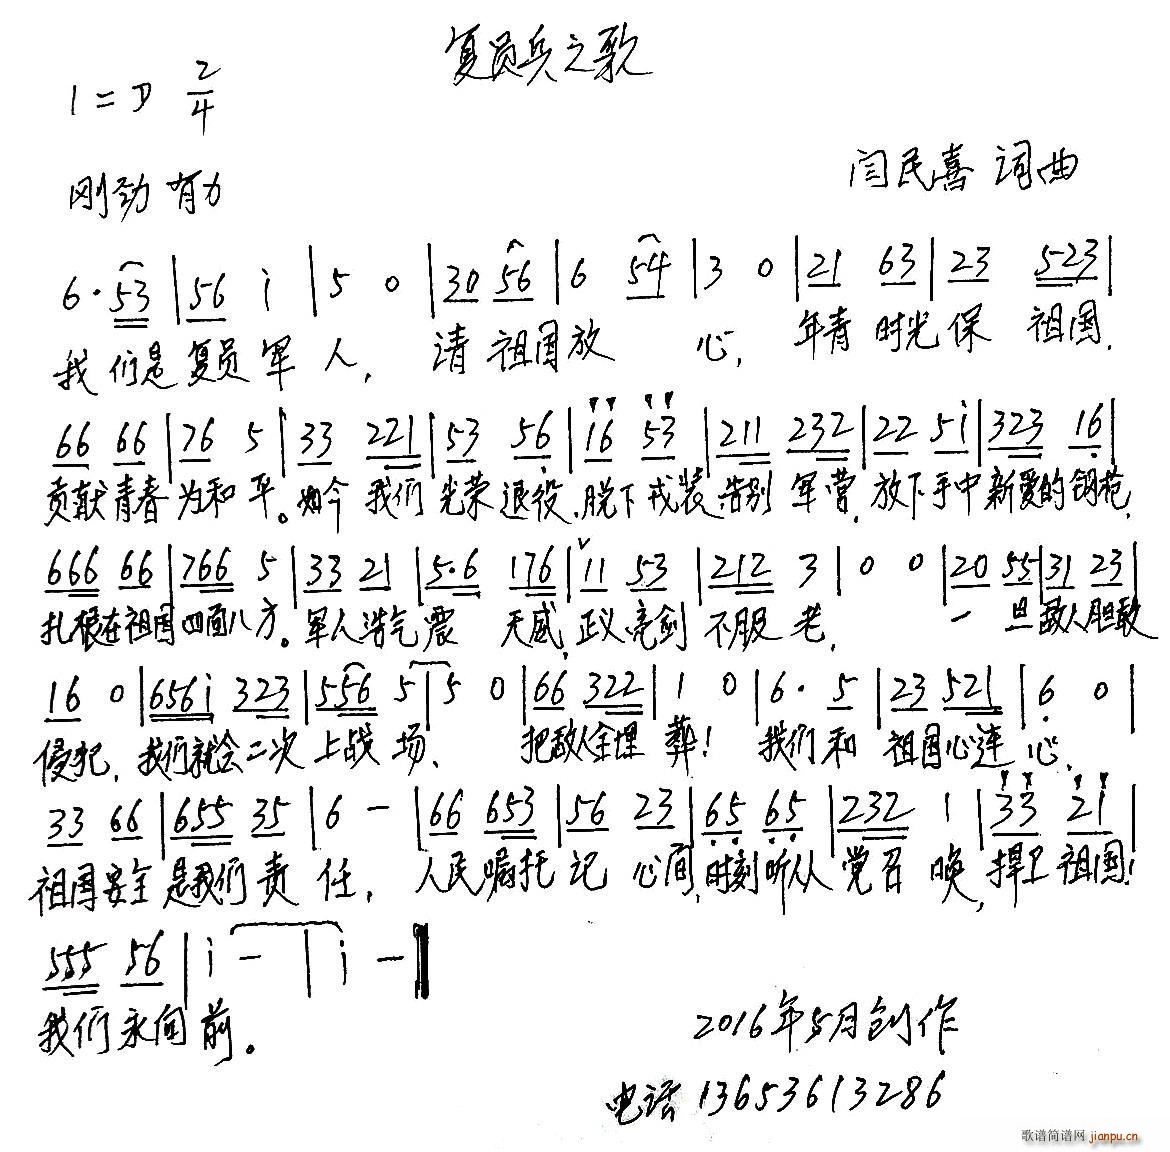 复员兵之歌
1=D 2/4
刚劲 有力
闫民喜 词曲
6·53|56 i|5 0|30 56|6 54|3 0|21 63|23 523|
我们是复员军人, 请祖国放 心, 年青时光保 祖国,
66 66|76 5|33 221|53 56|16 53|211 232|22 5i|323 16|
贡献青春为和平。如今我们光荣退役,脱下戎装,告别军营,放下手中亲爱的钢枪,
666 66|766 5|33 21|5·6 176|11 53|212 3|0 0|20 55|31 23|
扎根在祖国四面八方。军人浩气震 天威,正义亮剑不服老, 一 旦敌人胆敢
16 0|656i 323|556 5|5 0|66 322|1 0|6· 5|23 521|6 0|
侵犯,我们就会二次上战场、 把敌人全埋葬! 我们和 祖国心连心,
33 66|655 35|6 -|66 653|56 23|65 65|232 1|33 21|
祖国安全是我们责任, 人民嘱托记 心间,时刻听从党召唤,捍卫祖国!
555 56|i -|i -‖
我们永向前。
2016年5月创作
电话 13653613286
歌谱简谱网 jianpu.cn